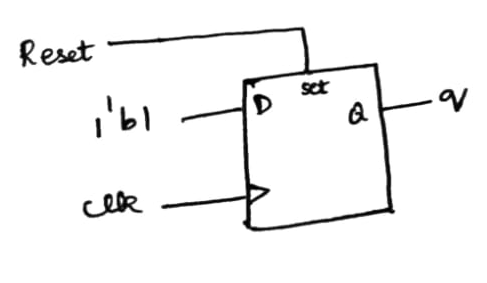 Reset
set
1'b1
D
Q
q
clk